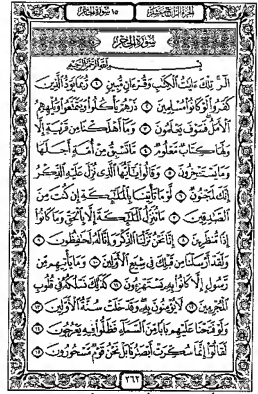 الجزء الرابع عشر ١٥ سورة الحجر
سورة الحجر
بسم الله الرحمن الرحيم
الٓر تِلْكَ ءَايَٰتُ ٱلْكِتَٰبِ وَقُرْءَانٍ مُّبِينٍ ١ رُّبَمَا يَوَدُّ ٱلَّذِينَ
كَفَرُوا۟ لَوْ كَانُوا۟ مُسْلِمِينَ ٢ ذَرْهُمْ يَأْكُلُوا۟ وَيَتَمَتَّعُوا۟ وَيُلْهِهِمُ
ٱلْأَمَلُ فَسَوْفَ يَعْلَمُونَ ٣ وَمَآ أَهْلَكْنَا مِن قَرْيَةٍ إِلَّا
وَلَهَا كِتَابٌ مَّعْلُومٌ ٤ مَّا تَسْبِقُ مِنْ أُمَّةٍ أَجَلَهَا
وَمَا يَسْتَـْٔخِرُونَ ٥ وَقَالُوا۟ يَٰٓأَيُّهَا ٱلَّذِى نُزِّلَ عَلَيْهِ ٱلذِّكْرُ
إِنَّكَ لَمَجْنُونٌ ٦ لَّوْ مَا تَأْتِينَا بِٱلْمَلَٰٓئِكَةِ إِن كُنتَ مِنَ
ٱلصَّٰدِقِينَ ٧ مَا نُنَزِّلُ ٱلْمَلَٰٓئِكَةَ إِلَّا بِٱلْحَقِّ وَمَا كَانُوٓا۟
إِذًا مُّنظَرِينَ ٨ إِنَّا نَحْنُ نَزَّلْنَا ٱلذِّكْرَ وَإِنَّا لَهُۥ لَحَٰفِظُونَ ٩
وَلَقَدْ أَرْسَلْنَا مِن قَبْلِكَ فِى شِيَعِ ٱلْأَوَّلِينَ ١٠ وَمَا يَأْتِيهِم مِّن
رَّسُولٍ إِلَّا كَانُوا۟ بِهِۦ يَسْتَهْزِءُونَ ١١ كَذَٰلِكَ نَسْلُكُهُۥ فِى قُلُوبِ
ٱلْمُجْرِمِينَ ١٢ لَا يُؤْمِنُونَ بِهِۦ وَقَدْ خَلَتْ سُنَّةُ ٱلْأَوَّلِينَ ١٣
وَلَوْ فَتَحْنَا عَلَيْهِم بَابًا مِّنَ ٱلسَّمَآءِ فَظَلُّوا۟ فِيهِ يَعْرُجُونَ ١٤
لَقَالُوٓا۟ إِنَّمَا سُكِّرَتْ أَبْصَٰرُنَا بَلْ نَحْنُ قَوْمٌ مَّسْحُورُونَ ١٥
٢٦٢